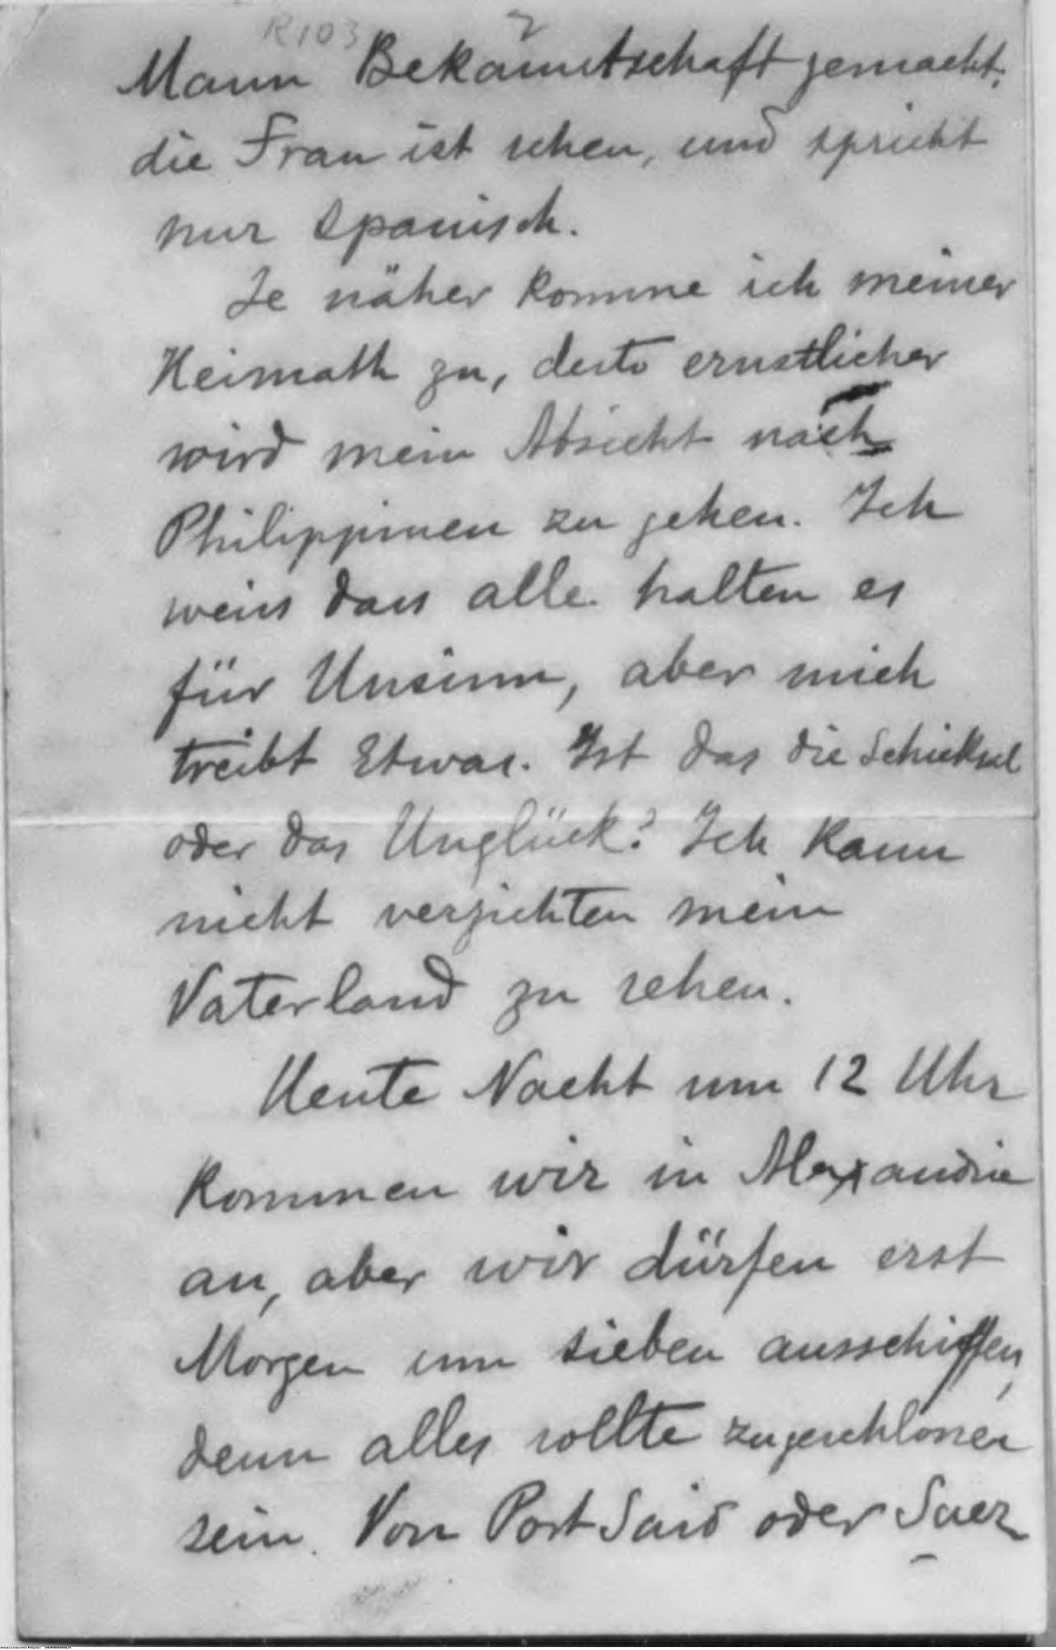 R103 2
Mann Bekanntschaft gemacht,
die Frau ist schen, und spricht
nur Spanisch.
Je näher komme ich meiner
Heimath zu, desto ernstlicher
wird mein Absicht nach
Philippinen zu gehen. Ich
weiss dass alle halten es
für Unsinn, aber mich
treibt Etwas. Ist das die Schicksal
oder das Unglück? Ich kann
nicht verzichten mein
Vaterland zu sehen.
Heute Nacht um 12 Uhr
kommen wir in Alexandrie
an, aber wir dürfen erst
Morgen um sieben ausschiffen,
denn alles sollte zugeschlossen
sein. Von Port Said oder Suez